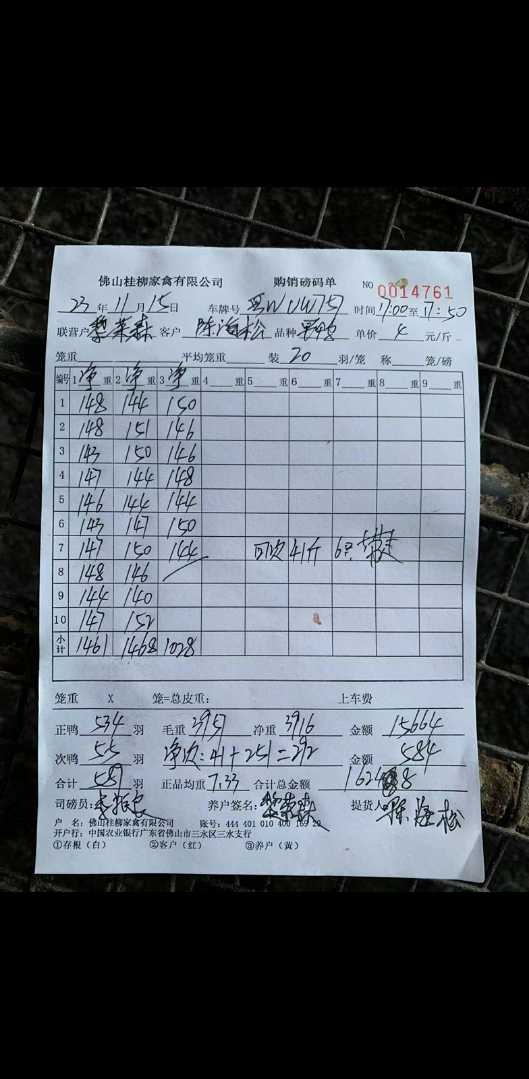 佛山桂柳家禽有限公司 购销磅码单 NO 0014761
23年11月15日 车牌号 时间17:00至17:50
联营户 黎荣森 客户 陈海松 品种 单价 4 元/斤
笼重 平均笼重 装 20 羽/笼 称 笼/磅
编号 1净重 2净重 3净重 4重 5重 6重 7重 8重 9重
1 148 144 150
2 148 151 146
3 143 150 146
4 147 144 148
5 146 144 144
6 143 147 150
7 147 150 144 41斤 6只
8 148 146
9 144 140
10 147 152
小计 1461 1468 1028
笼重 X 笼=总皮重: 上车费
正鸭 534 羽 毛重 3957 净重 3916 金额 15664
次鸭 55 羽 净次:41+251=292 金额 584
合计 589 羽 正品均重 7.33 合计总金额 16248
司磅员: 养户签名: 黎荣森 提货人 陈海松
户 名: 佛山桂柳家禽有限公司 账号: 444 401 010 400 169 29
开户行: 中国农业银行广东省佛山市三水区三水支行
①存根(白) ②客户(红) ③养户(黄)